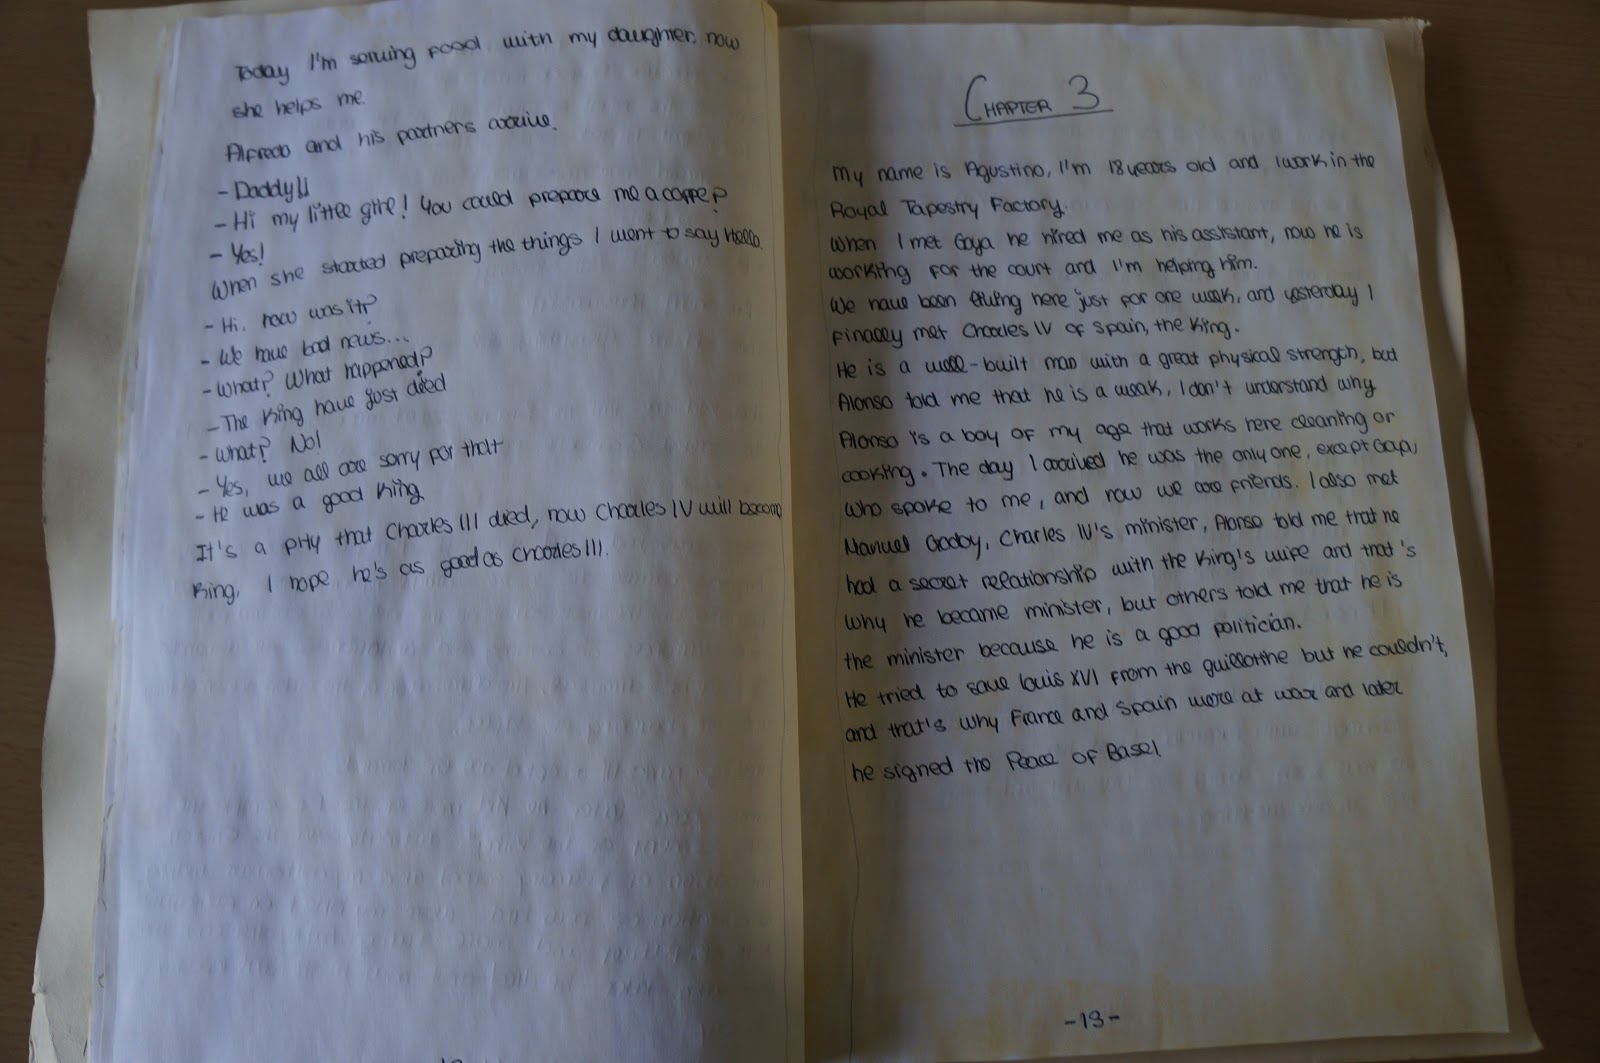 Today I'm serving food with my daughter, now
she helps me.
Alfredo and his partners arrive.
- Daddy!!
- Hi my little girl! You could prepare me a coffe?
- Yes!
When she started preparing the things I went to say Hello.
- Hi, how was it?
- We have bad news...
- What? What happened?
- The King have just died
- What? No!
- Yes, we all are sorry for that
- He was a good King
It's a pity that Charles III died, now Charles IV will become
King, I hope he's as good as Charles III.
CHAPTER 3
My name is Agustino, I'm 18 years old and I work in the
Royal Tapestry Factory.
When I met Goya he hired me as his assistant, now he is
working for the court and I'm helping him.
We have been living here just for one week, and yesterday I
finally met Charles IV of Spain, the King.
He is a well-built man with a great physical strength, but
Alonso told me that he is a weak, I don't understand why
Alonso is a boy of my age that works here cleaning or
cooking. The day I arrived he was the only one, except Goya,
who spoke to me, and now we are friends. I also met
Manuel Godoy, Charles IV's minister, Alonso told me that he
had a secret relationship with the King's wife and that's
why he became minister, but others told me that he is
the minister because he is a good politician.
He tried to save Louis XVI from the guillotine but he couldn't,
and that's why France and Spain were at war and later
he signed the Peace of Basel
-13-